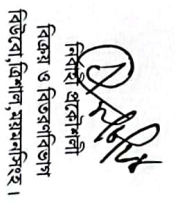 নির্বাহী প্রকৌশলী
বিক্রয় ও বিতরণবিভাগ
বিউবো,ত্রিশাল,ময়মনসিংহ।